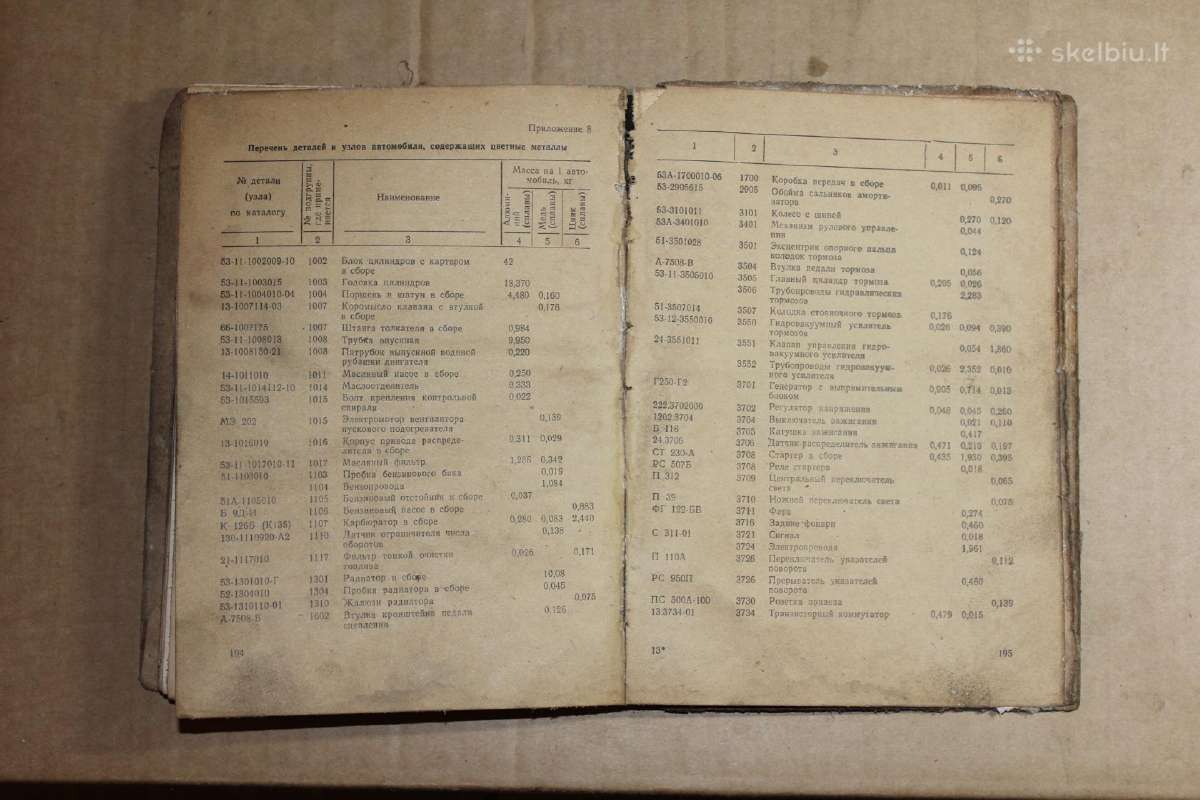 skelbiu.lt
Приложение 8
Перечень деталей и узлов автомобиля, содержащих цветные металлы
№ детали (узла) по каталогу
№ подгруппы, где применяется
Наименование
Масса на 1 автомобиль, кг
Алюминий (сплавы)
Медь (сплавы)
Цинк (сплавы)
1 2 3 4 5 6
53-11-1002009-10 1002 Блок цилиндров с картером 42
в сборе
53-11-1003015 1003 Головка цилиндров 18,370
53-11-1004010-04 1004 Поршень и шатун в сборе 4,480 0,160
13-1007114-03 1007 Коромысло клапана с втулкой 0,176
в сборе
66-1007175 1007 Штанга толкателя в сборе 0,984
53-11-1008013 1008 Трубка впускная 9,950
13-1008150-21 1008 Патрубок выпускной водяной 0,220
рубашки двигателя
14-1011010 1011 Масляный насос в сборе 0,250
53-11-1014112-10 1014 Маслоотделитель 0,333
53-1015593 1015 Болт крепления контрольной 0,022
спирали
МЭ 202 1015 Электромотор вентилятора 0,139
пускового подогревателя
13-1016010 1016 Корпус привода распреде- 0,311 0,029
лителя в сборе
53-11-1017010-11 1017 Масляный фильтр 1,285 0,342
51-1103010 1103 Пробка бензинового бака 0,019
1104 Бензопровода 1,084
51А-1105010 1105 Бензиновый отстойник в сборе 0,037
Б 9Д-И 1106 Бензиновый насос в сборе 0,883
К-126Б (К-135) 1107 Карбюратор в сборе 0,280 0,083 2,440
130-1110920-А2 1110 Датчик ограничителя числа 0,138
оборотов
21-1117010 1117 Фильтр тонкой очистки 0,026 0,171
топлива
53-1301010-Г 1301 Радиатор в сборе 10,08
52-1304010 1304 Пробка радиатора в сборе 0,045
53-1310110-01 1310 Жалюзи радиатора 0,075
А-7508-Б 1602 Втулка кронштейна педали 0,126
сцепления
194
1 2 3 4 5 6
53А-1700010-06 1700 Коробка передач в сборе 0,011 0,095
53-2905615 2905 Обойма сальников аморти- 0,270
затора
53-3101011 3101 Колесо с шиной 0,270 0,120
53А-3401010 3401 Механизм рулового управле- 0,044
ния
51-3501028 3501 Эксцентрик опорного пальца 0,124
колодок тормоза
А-7508-В 3504 Втулка педали тормоза 0,056
53-11-3505010 3505 Главный цилиндр тормоза 0,205 0,026
3506 Трубопроводы гидравлических 2,283
тормозов
51-3507014 3507 Колодка стояночного тормоза 0,176
53-12-3550010 3550 Гидровакуумный усилитель 0,026 0,094 0,390
тормозов
24-3551011 3551 Клапан управления гидро- 0,054 1,860
вакуумного усилителя
3552 Трубопроводы гидровакуум- 0,026 2,352 0,010
ного усилителя
Г250-Г2 3701 Генератор с выпрямительным 0,905 0,714 0,013
блоком
222.3702000 3702 Регулятор напряжения 0,048 0,045 0,260
1202.3704 3704 Выключатель зажигания 0,021 0,110
Б 116 3705 Катушка зажигания 0,417
24.3706 3706 Датчик-распределитель зажигания 0,471 0,213 0,197
СТ 230-А 3708 Стартер в сборе 0,435 1,930 0,395
РС 507Б 3708 Реле стартера 0,018
П 312 3709 Центральный переключатель 0,065
света
П 39 3710 Ножной переключатель света 0,075
ФГ 122-БВ 3711 Фара 0,274
3716 Задние фонари 0,460
С 311-01 3721 Сигнал 0,018
3724 Электропровода 1,961
П 110А 3726 Переключатель указателей 0,112
поворота
РС 950П 3726 Прерыватель указателей 0,460
поворота
ПС 300А-100 3730 Розетка прицепа 0,139
13.3734-01 3734 Транзисторный коммутатор 0,479 0,015
13*
195